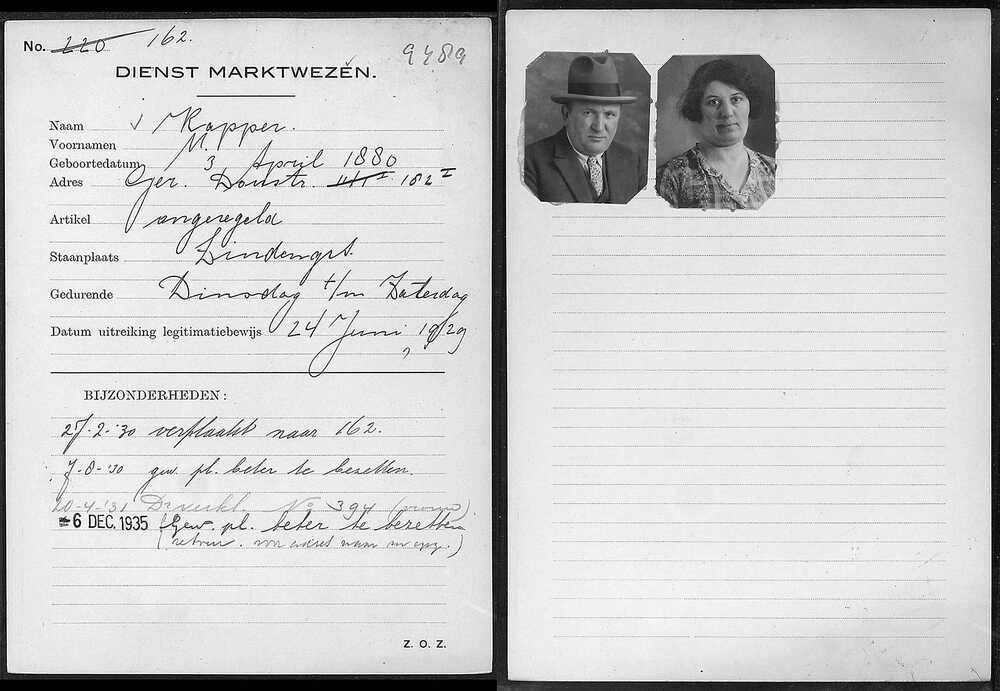 No. 220 162.
9489
DIENST MARKTWEZEN.
Naam √ Kapper.
Voornamen M.
Geboortedatum 3 April 1880
Adres Ger. Doustr. 182 I
Artikel ongeregeld
Staanplaats Lindengrt.
Gedurende Dinsdag t/m Zaterdag
Datum uitreiking legitimatiebewijs 24 Juni 1929
BIJZONDERHEDEN:
27-2-'30 verplaatst naar 162.
7-8-'30 gew. pl. beter te bezetten.
20-4-'31 No 394
6 DEC. 1935 (Gew. pl. beter te bezetten
(retour.
Z. O. Z.